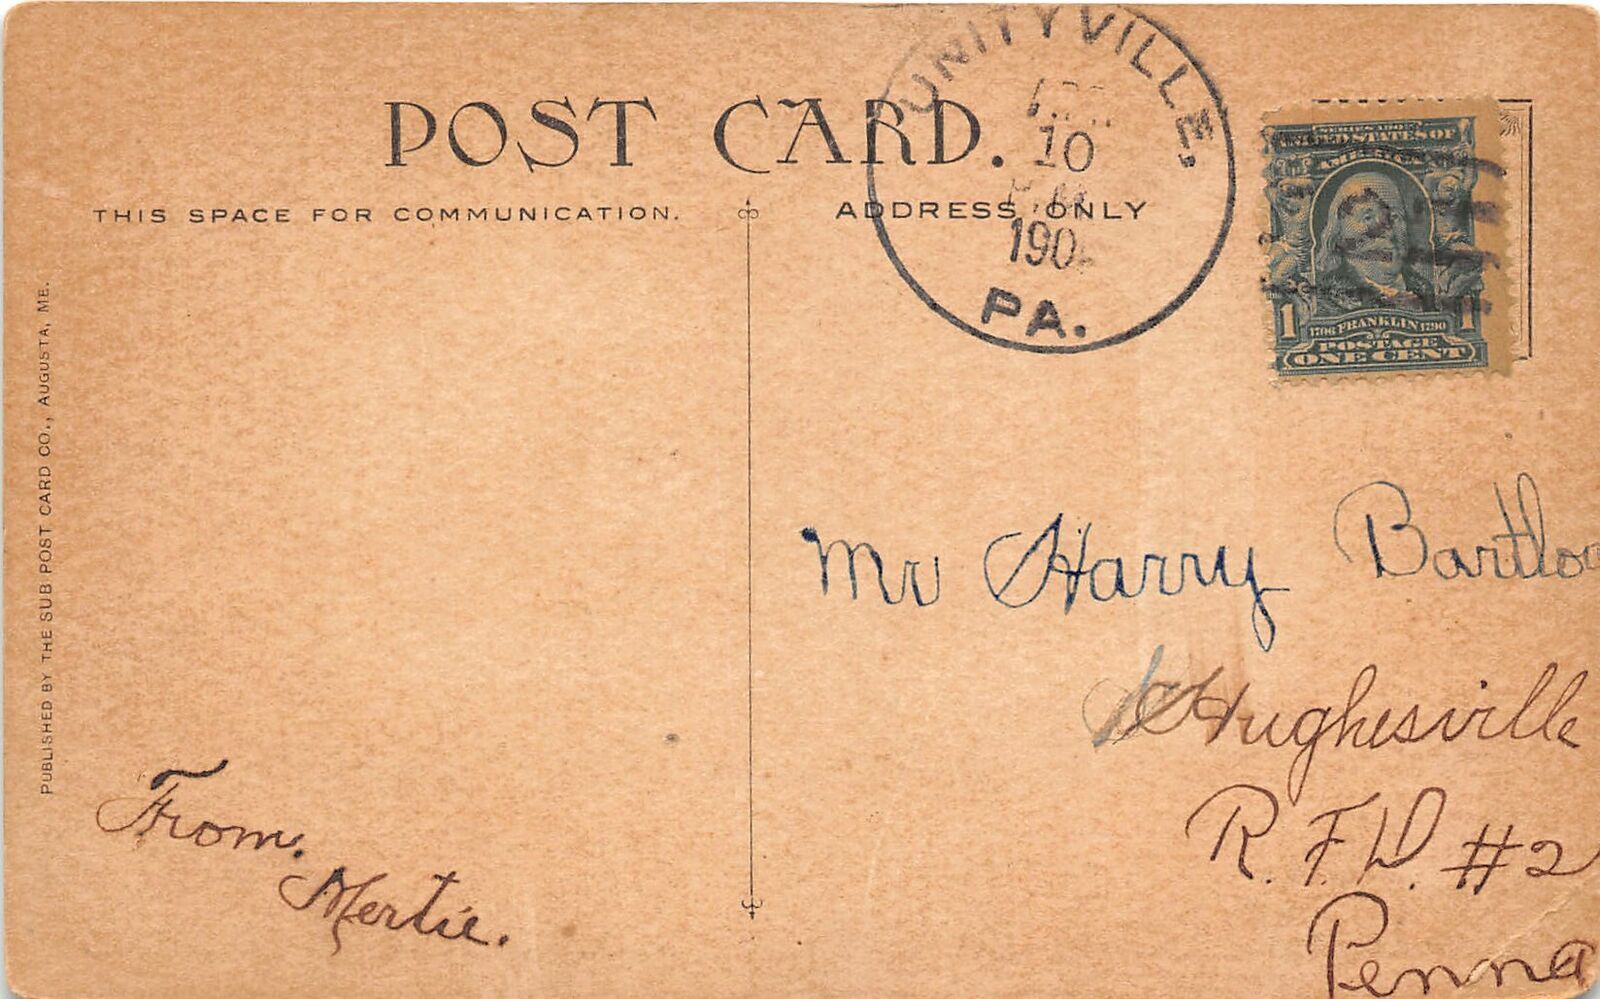 POST CARD.
THIS SPACE FOR COMMUNICATION.
ADDRESS ONLY
UNITYVILLE,
10
PA.
SERIES 1902
UNITED STATES OF
AMERICA
1 1
1706 FRANKLIN 1790
POSTAGE
ONE CENT
PUBLISHED BY THE SUB POST CARD CO., AUGUSTA, ME.
Mr Harry Bartlow
Hughesville
R.F.D. #2
Penna
From.
Mertie.